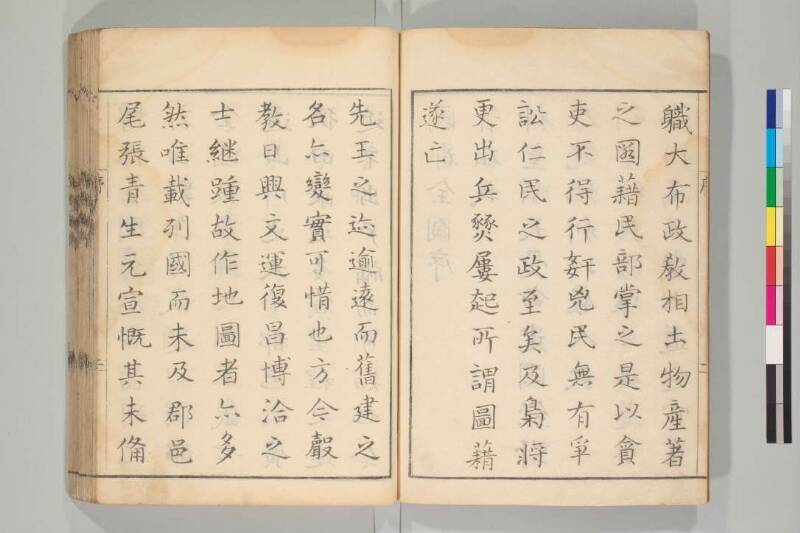 職大布政敎相土物産著
之圖藉民部掌之是以貪
吏不得行奸兇民無有爭
訟仁民之政至矣及梟將
更出兵燹屢起所謂圖藉
遂亡
先王之迹逾遠而舊建之
名亦變實可惜也方今聲
教日興文運復昌博洽之
士継踵故作地圖者亦多
然唯載列國而未及郡邑
尾張青生元宣慨其未備
序
二
序